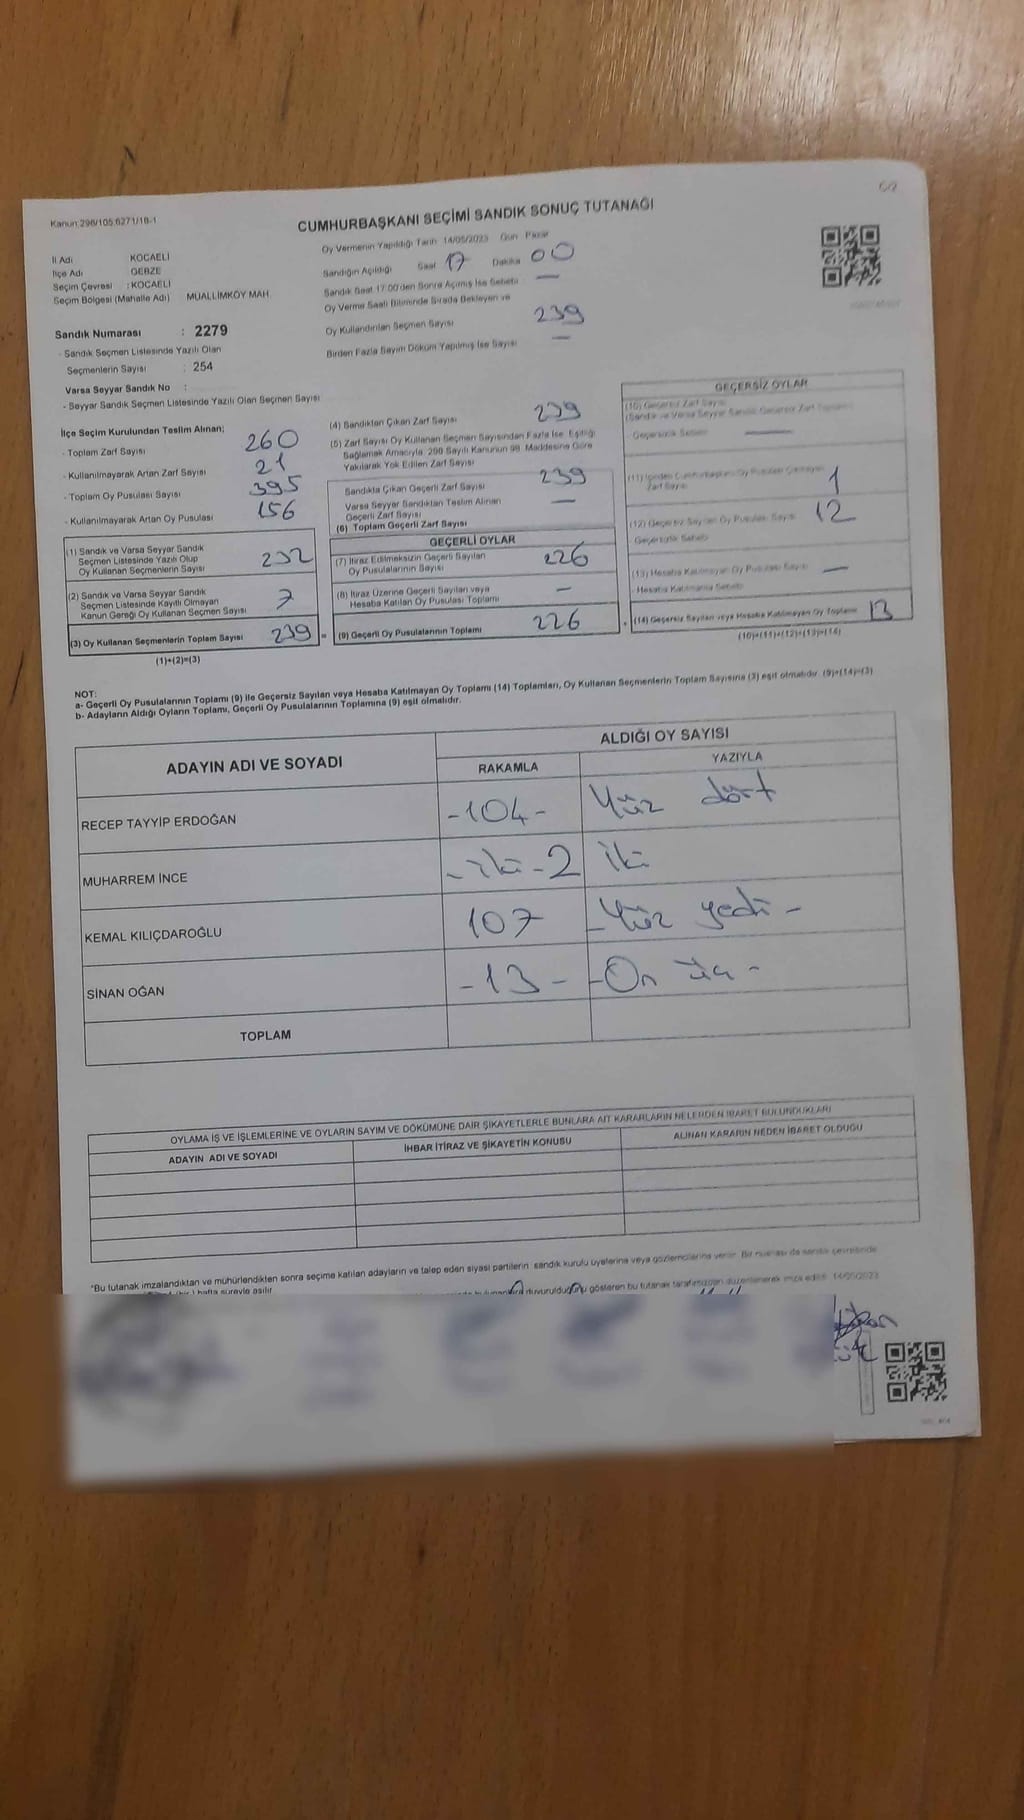 C/2
Kanun:298/105;6271/18-1
CUMHURBAŞKANI SEÇİMİ SANDIK SONUÇ TUTANAĞI
Oy Vermenin Yapıldığı Tarih 14/05/2023 Gün Pazar
İl Adı KOCAELİ
İlçe Adı GEBZE
Seçim Çevresi : KOCAELİ
Seçim Bölgesi (Mahalle Adı) MUALLİMKÖY MAH.
Sandığın Açıldığı Saat 17 Dakika 00
Sandık Saat 17:00'den Sonra Açılmış İse Sebebi —
Oy Verme Saati Bitiminde Sırada Bekleyen ve
Oy Kullandırılan Seçmen Sayısı 239
Birden Fazla Sayım Döküm Yapılmış İse Sayısı —
Sandık Numarası : 2279
- Sandık Seçmen Listesinde Yazılı Olan
Seçmenlerin Sayısı : 254
Varsa Seyyar Sandık No :
- Seyyar Sandık Seçmen Listesinde Yazılı Olan Seçmen Sayısı
İlçe Seçim Kurulundan Teslim Alınan;
- Toplam Zarf Sayısı 260
- Kullanılmayarak Artan Zarf Sayısı 21
- Toplam Oy Pusulası Sayısı 395
- Kullanılmayarak Artan Oy Pusulası 156
(1) Sandık ve Varsa Seyyar Sandık
Seçmen Listesinde Yazılı Olup
Oy Kullanan Seçmenlerin Sayısı 232
(2) Sandık ve Varsa Seyyar Sandık
Seçmen Listesinde Kayıtlı Olmayan
Kanun Gereği Oy Kullanan Seçmen Sayısı 7
(3) Oy Kullanan Seçmenlerin Toplam Sayısı 239 =
(1)+(2)=(3)
(4) Sandıktan Çıkan Zarf Sayısı 239
(5) Zarf Sayısı Oy Kullanan Seçmen Sayısından Fazla İse, Eşitliği
Sağlamak Amacıyla, 298 Sayılı Kanunun 98. Maddesine Göre
Yakılarak Yok Edilen Zarf Sayısı
Sandıkta Çıkan Geçerli Zarf Sayısı 239
Varsa Seyyar Sandıktan Teslim Alınan
Geçerli Zarf Sayısı —
(6) Toplam Geçerli Zarf Sayısı
GEÇERLİ OYLAR
(7) İtiraz Edilmeksizin Geçerli Sayılan
Oy Pusulalarının Sayısı 226
(8) İtiraz Üzerine Geçerli Sayılan veya
Hesaba Katılan Oy Pusulası Toplamı —
(9) Geçerli Oy Pusulalarının Toplamı 226 +
GEÇERSİZ OYLAR
(10) Geçersiz Zarf Sayısı
(Sandık ve Varsa Seyyar Sandık Geçersiz Zarf Toplamı)
- Geçersizlik Sebebi —
(11) İçinden Cumhurbaşkanı Oy Pusulası Çıkmayan
Zarf Sayısı 1
(12) Geçersiz Sayılan Oy Pusulası Sayısı 12
- Geçersizlik Sebebi
(13) Hesaba Katılmayan Oy Pusulası Sayısı —
Hesaba Katılmama Sebebi
(14) Geçersiz Sayılan veya Hesaba Katılmayan Oy Toplamı 13
(10)+(11)+(12)+(13)=(14)
NOT:
a- Geçerli Oy Pusulalarının Toplamı (9) ile Geçersiz Sayılan veya Hesaba Katılmayan Oy Toplamı (14) Toplamları, Oy Kullanan Seçmenlerin Toplam Sayısına (3) eşit olmalıdır. (9)+(14)=(3)
b- Adayların Aldığı Oyların Toplamı, Geçerli Oy Pusulalarının Toplamına (9) eşit olmalıdır.
ADAYIN ADI VE SOYADI ALDIĞI OY SAYISI
RAKAMLA YAZIYLA
RECEP TAYYİP ERDOĞAN -104- Yüz dört
MUHARREM İNCE - iki - 2 iki
KEMAL KILIÇDAROĞLU 107 - Yüz yedi -
SİNAN OĞAN -13- - On üç -
TOPLAM
OYLAMA İŞ VE İŞLEMLERİNE VE OYLARIN SAYIM VE DÖKÜMÜNE DAİR ŞİKAYETLERLE BUNLARA AİT KARARLARIN NELERDEN İBARET BULUNDUKLARI
ADAYIN ADI VE SOYADI İHBAR İTİRAZ VE ŞİKAYETİN KONUSU ALINAN KARARIN NEDEN İBARET OLDUĞU
*Bu tutanak imzalandıktan ve mühürlendikten sonra seçime katılan adayların ve talep eden siyasi partilerin sandık kurulu üyelerine veya gözlemcilerine verilir. Bir nüshası da sandık çevresinde
hafta süreyle asılır. duyurulduğunu gösteren bu tutanak tarafımızdan düzenlenerek imza edildi. 14/05/2023